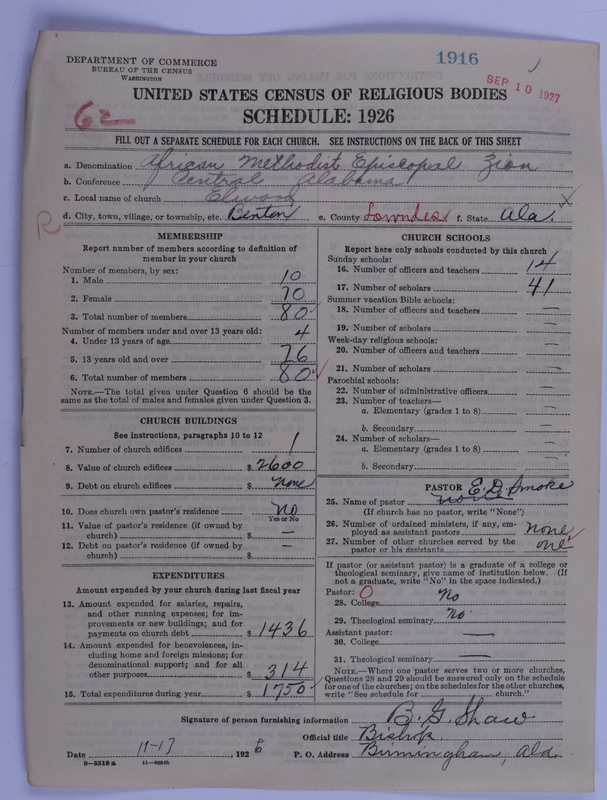 DEPARTMENT OF COMMERCE
BUREAU OF THE CENSUS
WASHINGTON
1916
SEP 10 1927
UNITED STATES CENSUS OF RELIGIOUS BODIES
SCHEDULE: 1926
62
FILL OUT A SEPARATE SCHEDULE FOR EACH CHURCH. SEE INSTRUCTIONS ON THE BACK OF THIS SHEET
a. Denomination African Methodist Episcopal Zion
b. Conference Central Alabama
c. Local name of church Elwood
d. City, town, village, or township, etc. Benton e. County Lowndes f. State Ala.
R
MEMBERSHIP
Report number of members according to definition of
member in your church
Number of members, by sex:
1. Male 10
2. Female 70
3. Total number of members 80
Number of members under and over 13 years old:
4. Under 13 years of age 4
5. 13 years old and over 76
6. Total number of members 80
NOTE.—The total given under Question 6 should be the
same as the total of males and females given under Question 3.
CHURCH BUILDINGS
See instructions, paragraphs 10 to 12
7. Number of church edifices 1
8. Value of church edifices $ 2600
9. Debt on church edifices $ none
10. Does church own pastor's residence? No
Yes or No
11. Value of pastor's residence (if owned by
church) $ —
12. Debt on pastor's residence (if owned by
church) $ —
EXPENDITURES
Amount expended by your church during last fiscal year
13. Amount expended for salaries, repairs,
and other running expenses; for im-
provements or new buildings; and for
payments on church debt $ 1436
14. Amount expended for benevolences, in-
cluding home and foreign missions; for
denominational support; and for all
other purposes $ 314
15. Total expenditures during year $ 1750
CHURCH SCHOOLS
Report here only schools conducted by this church
Sunday schools:
16. Number of officers and teachers 14
17. Number of scholars 41
Summer vacation Bible schools:
18. Number of officers and teachers —
19. Number of scholars —
Week-day religious schools:
20. Number of officers and teachers —
21. Number of scholars —
Parochial schools:
22. Number of administrative officers —
23. Number of teachers—
a. Elementary (grades 1 to 8) —
b. Secondary —
24. Number of scholars—
a. Elementary (grades 1 to 8) —
b. Secondary —
PASTOR E. D. Smoke
25. Name of pastor
(If church has no pastor, write "None")
26. Number of ordained ministers, if any, em-
ployed as assistant pastors none
27. Number of other churches served by the
pastor or his assistants one
If pastor (or assistant pastor) is a graduate of a college or
theological seminary, give name of institution below. (If
not a graduate, write "No" in the space indicated.)
Pastor: O
28. College No
29. Theological seminary No
Assistant pastor:
30. College —
31. Theological seminary —
NOTE.—Where one pastor serves two or more churches,
Questions 28 and 29 should be answered only on the schedule
for one of the churches; on the schedules for the other churches,
write "See schedule for church."
Signature of person furnishing information B. G. Shaw
Official title Bishop
Date 11-17, 1926 P. O. Address Birmingham, Ala.